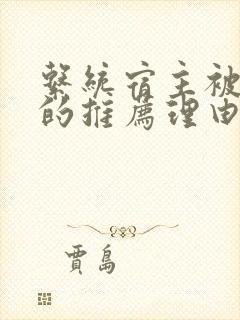 繫統宿主被
的推薦理由
賈島